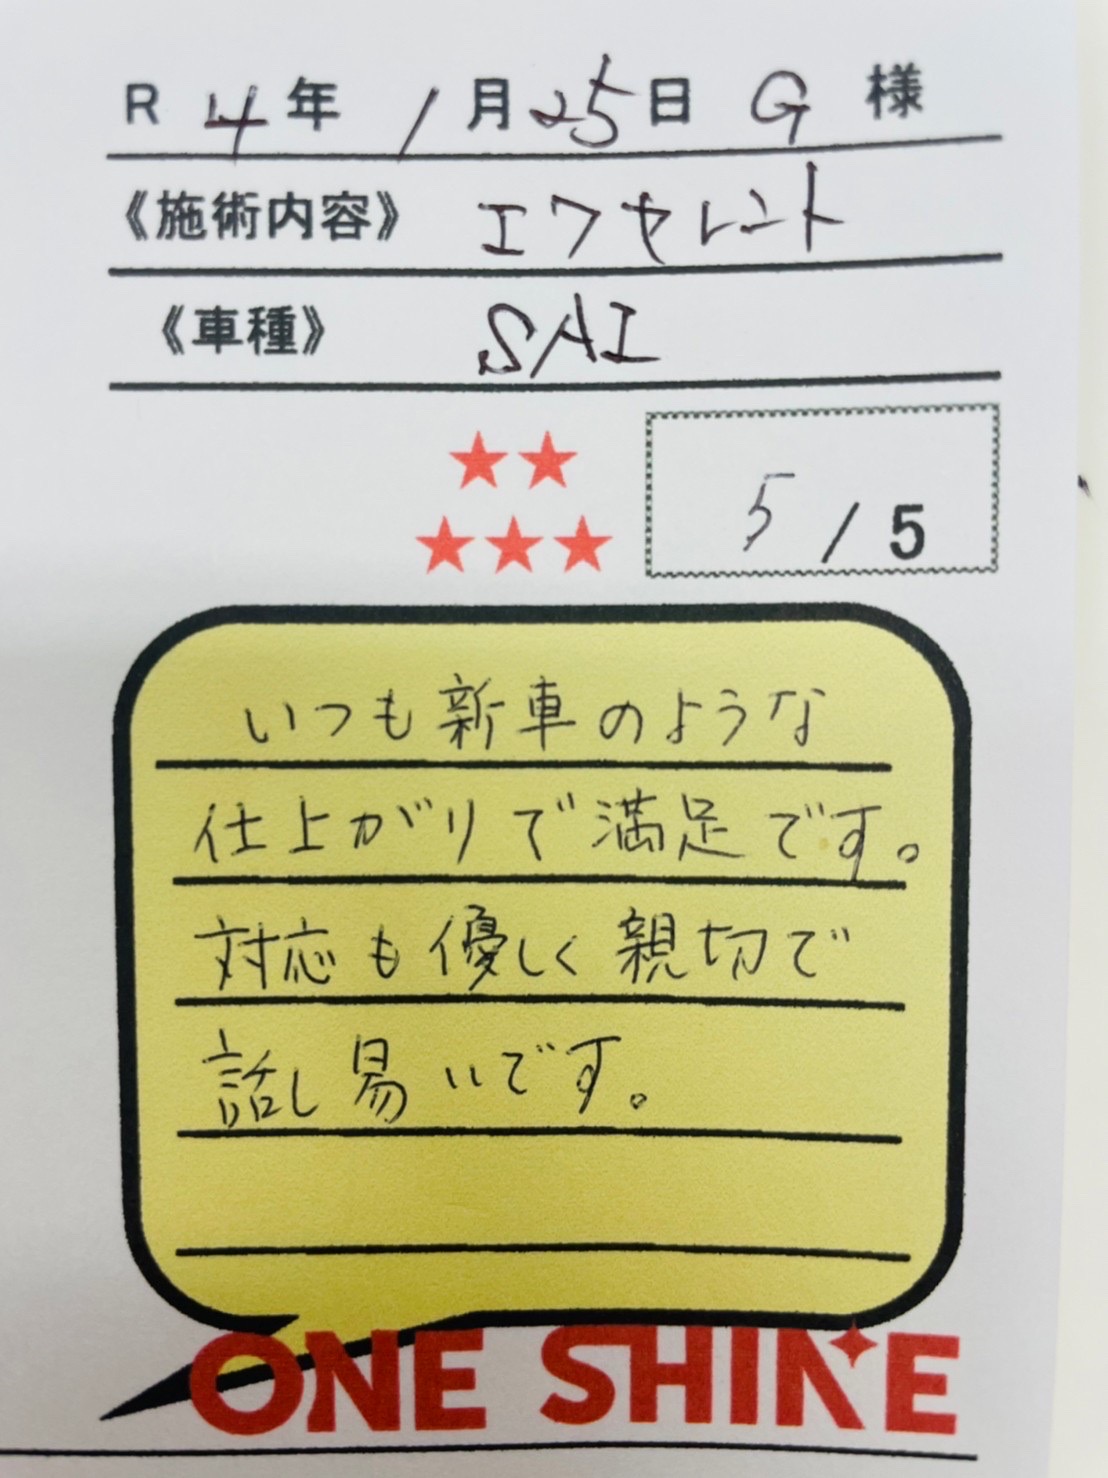 R 4年 1月25日 G 様
《施術内容》 エクセレント
《車種》 SAI
★★
★★★
5 / 5
いつも新車のような
仕上がりで満足です。
対応も優しく親切で
話し易いです。
ONE SHINE